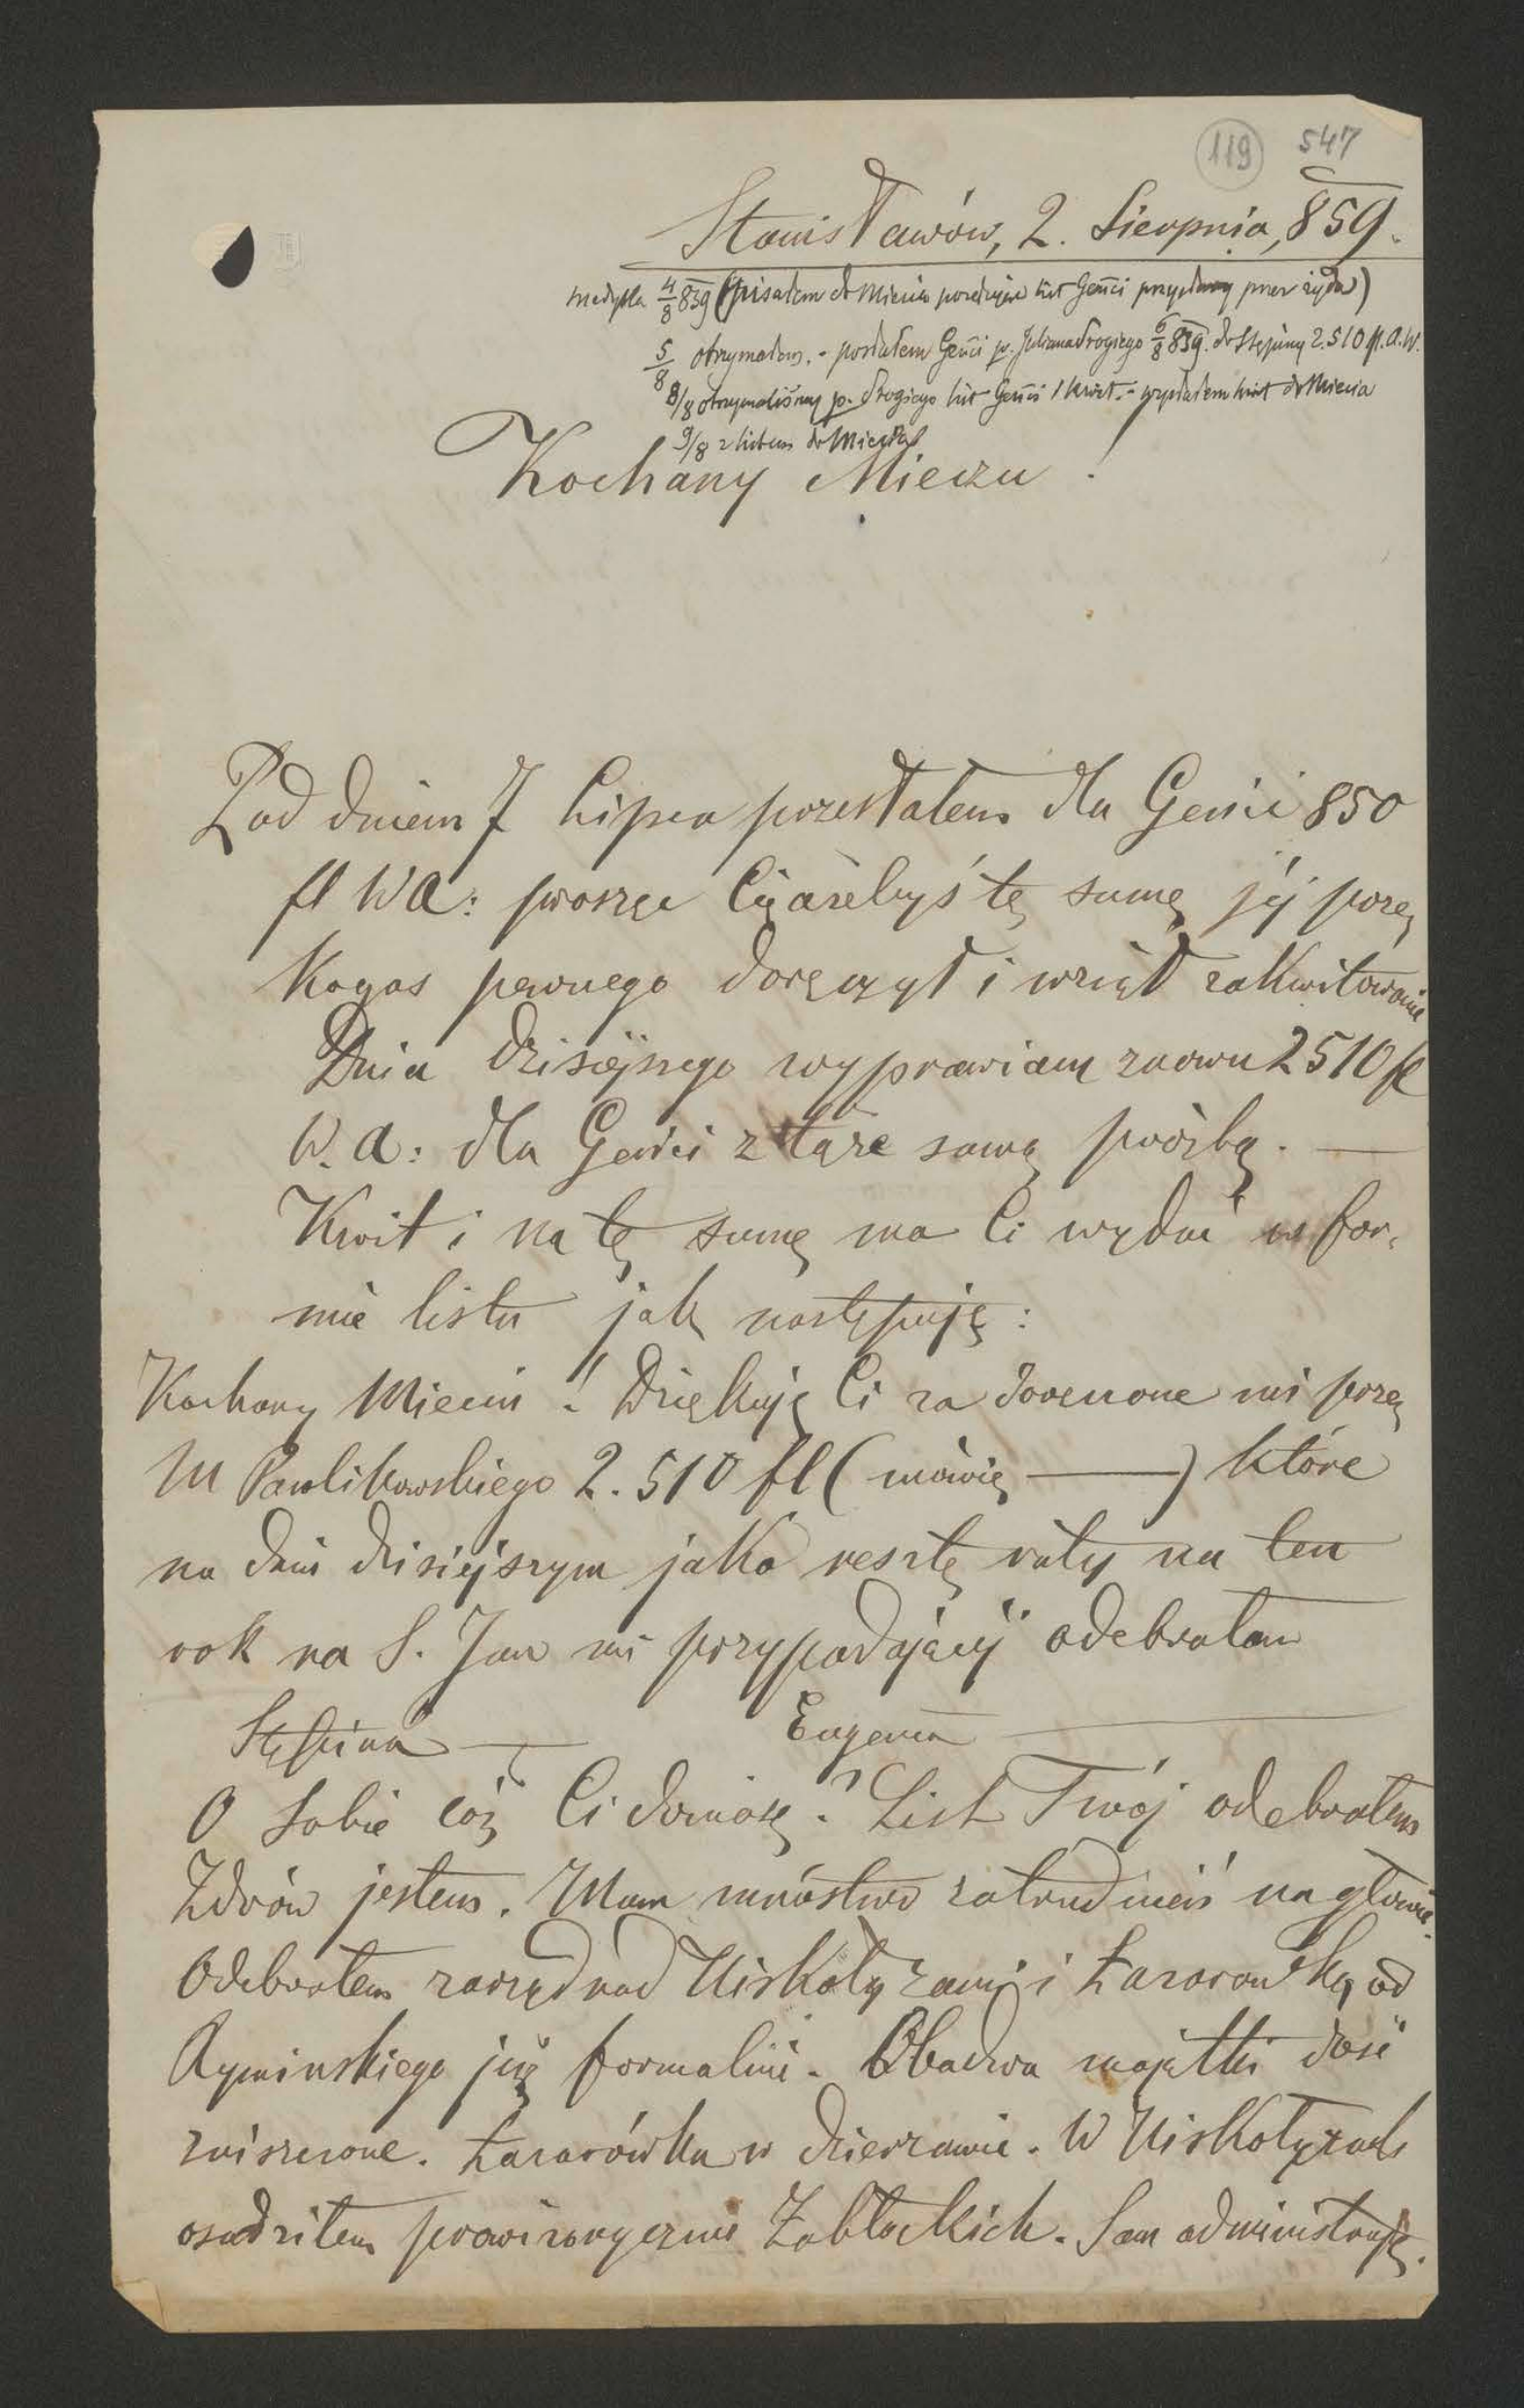 119 547
Stanisławów, 2. Sierpnia, 859.
Medyka 4/8 859 (pisałem do Miecia posełając list Geńci przysłany przez żyda)
5/8 otrzymałem. - posłałem Geńci p. Juliana Drogiego 6/8 859. do Stępiny 2.510 fl. A.W.
8/8 otrzymaliśmy p. Drogiego list Geńci i kwit. - wysłałem kwit do Miecia
9/8 z listem do
Kochany Mieczu!
Pod dniem 7 Lipca przesłałem dla Genii 850
fl WA: proszę Cię ażebyś tę sumę jéj przez
kogoś pewnego doręczył i wziął zakwitowanie
Dnia dzisiéjszego wyprawiam znowu 2510 fl
W. A: dla Genii z tąże samą prożbą. —
Kwit i na tę sumę ma Ci wydać w for-
mie listu jak następuję:
Kochany Mieciu! Dziękuję Ci za doręczone mi przez
M Pawlikowskiego 2.510 fl (mówię ———) które
na dniu dzisiéjszym jako resztę raty na ten
rok na S. Jan mi przypadającéj odebrałam
Stępina — Eugenia —
O sobie cóż Ci doniosę? List Twój odebrałem
Zdrów jestem. Mam mnóstwo zatrudnień na głowie.
Odebrałem zarząd nad Uiskołyzami i Łazarowką od
Rymińskiego już formalnie. Obadwa majątki dość
zniszczone. Łazarówka w dzierzawie. W Uiskołyzach
osadziłem prowizorycznie Zabłockich. Sam administruję.